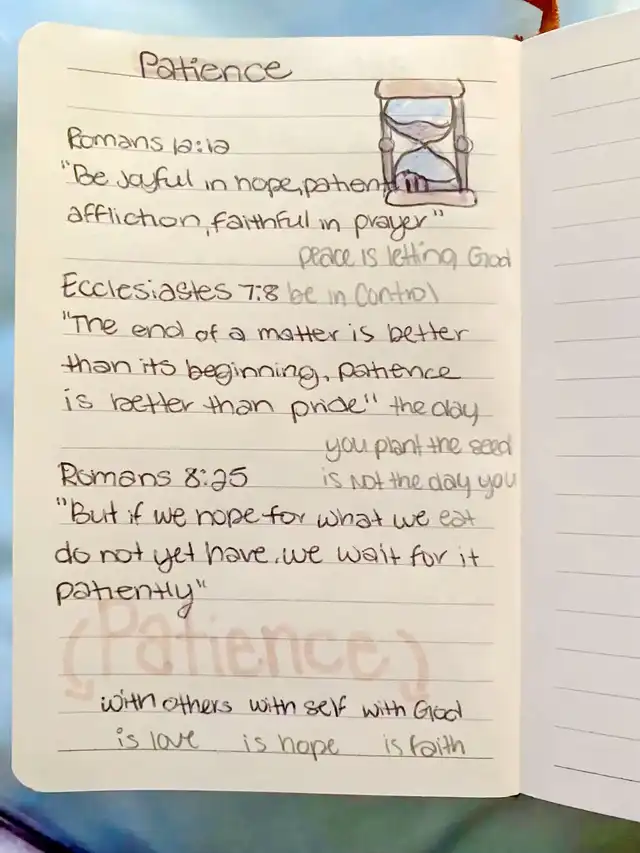 Patience
Romans 12:12
"Be Joyful in hope, patient in
affliction, faithful in prayer"
peace is letting God
Ecclesiastes 7:8 be in control
"The end of a matter is better
than its beginning, patience
is better than pride" the day
you plant the seed
Romans 8:25 is not the day you
"But if we hope for what we eat
do not yet have, we wait for it
patiently"
(Patience)
with others with self with God
is love is hope is faith